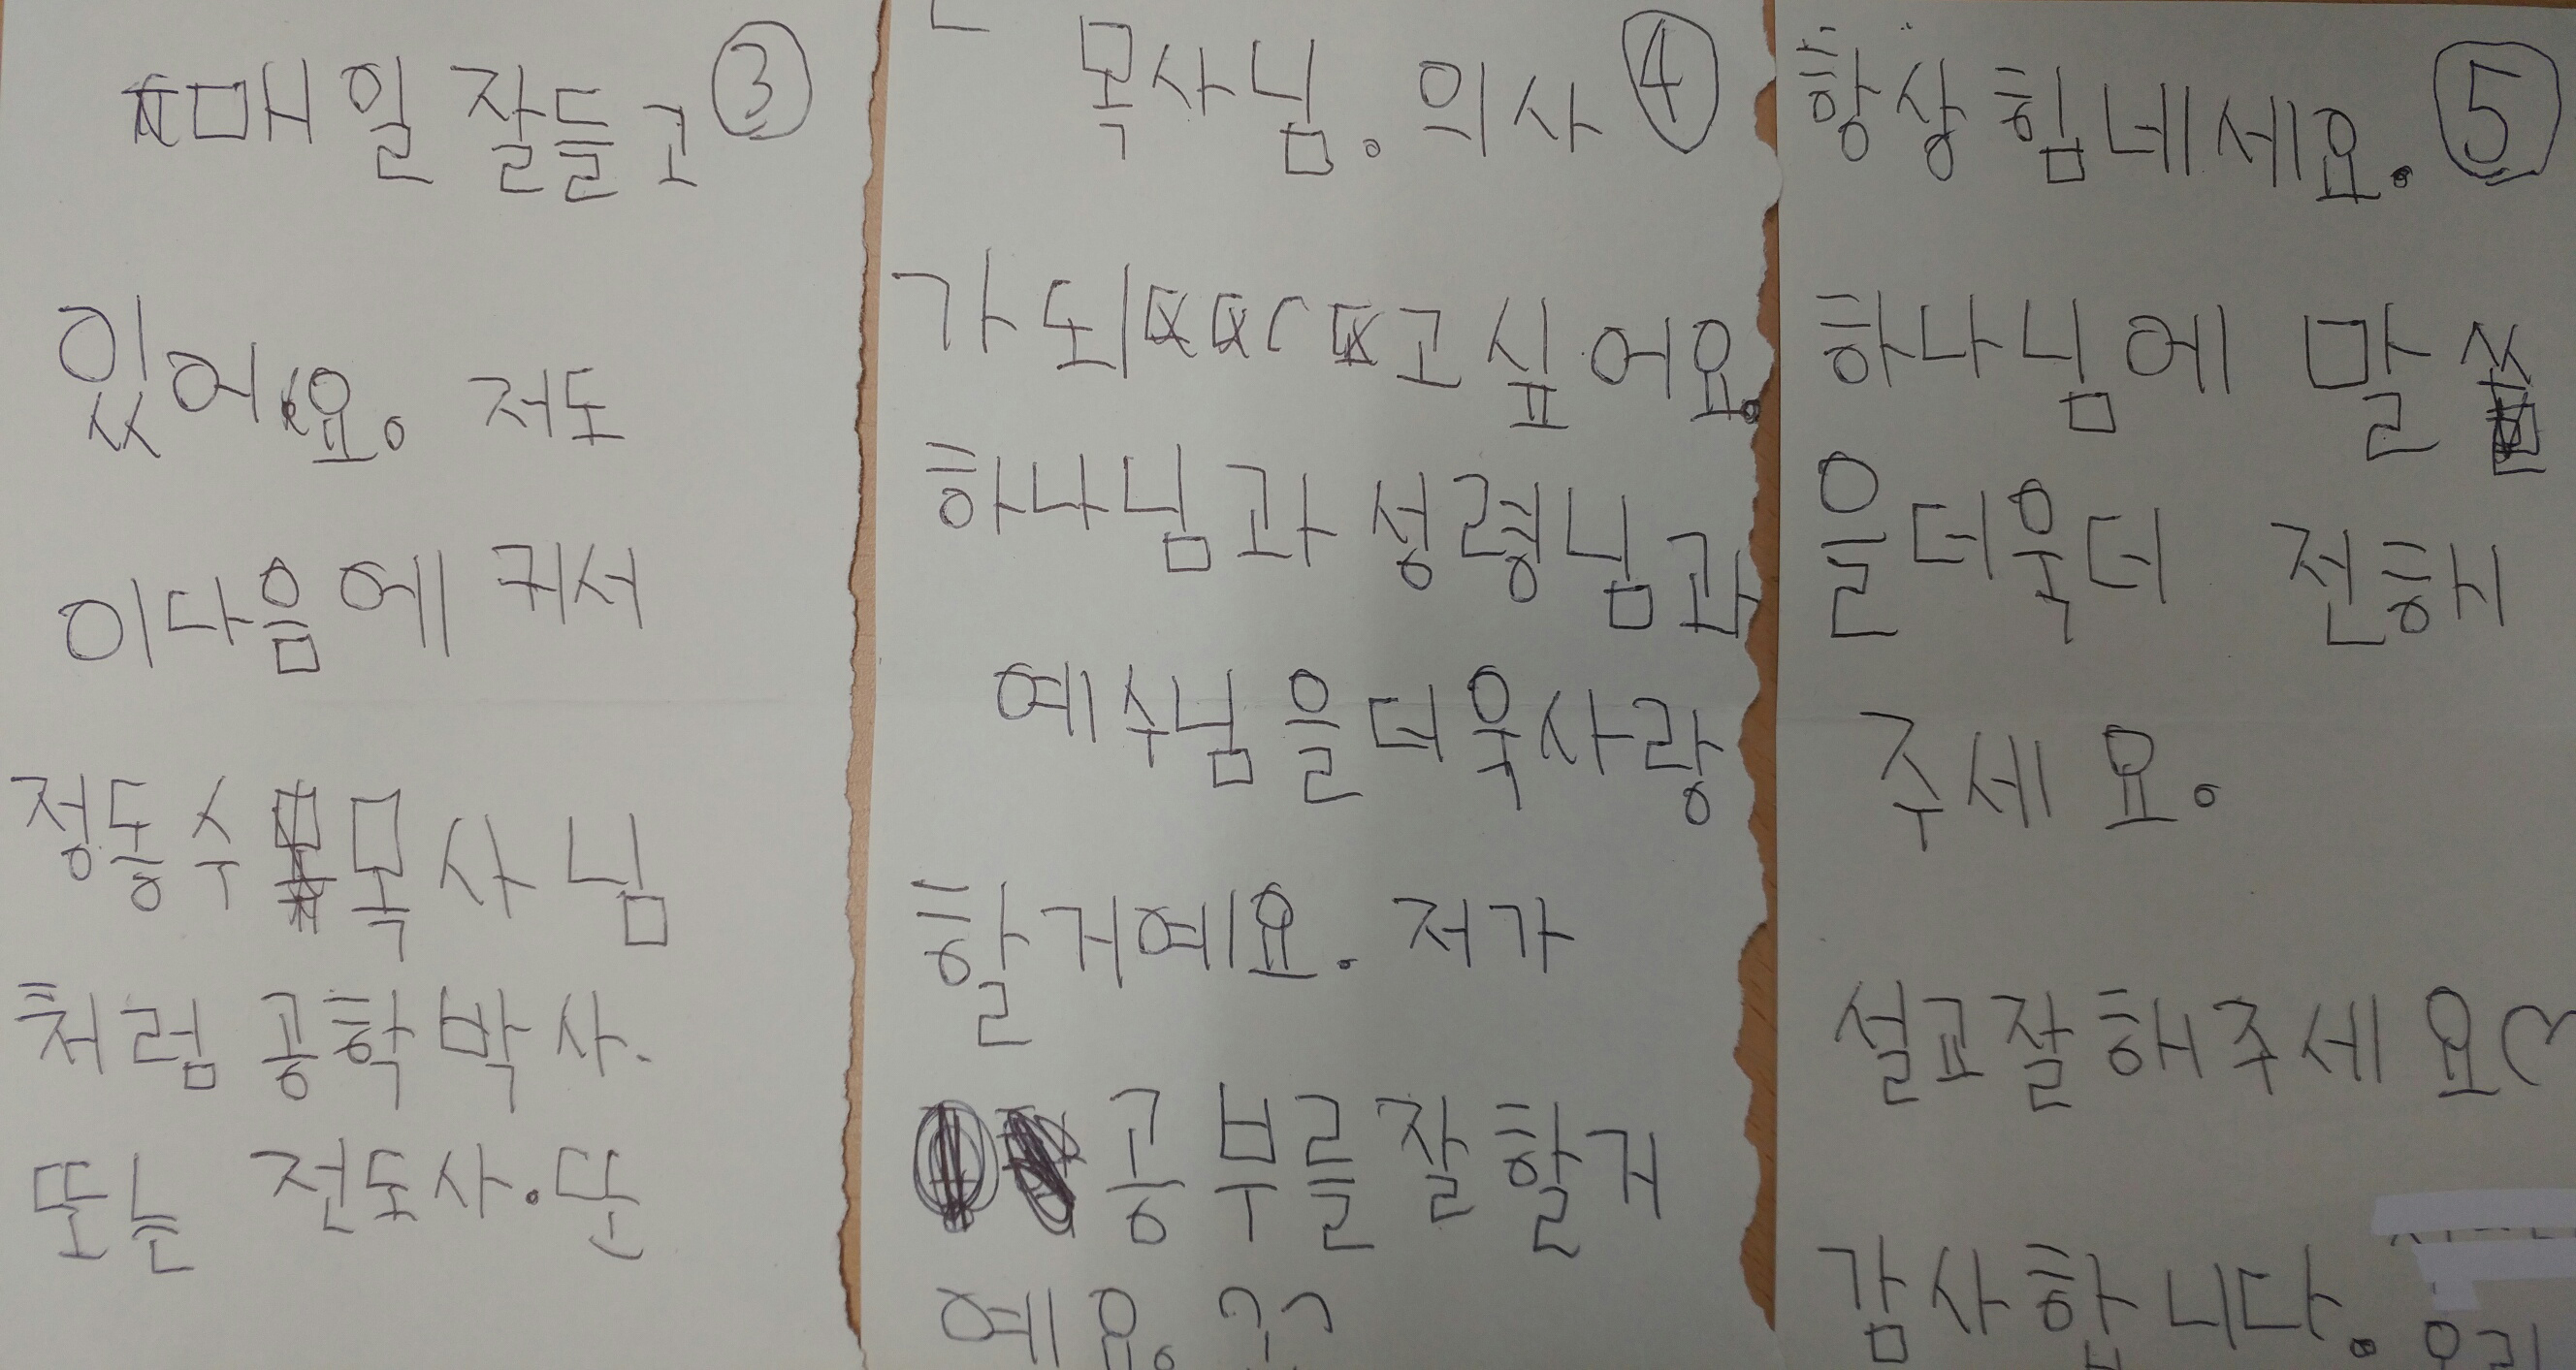 ③
매일 잘들고
있어요. 저도
이다음에 귀서
정동수 목사님
처럼 공학박사.
또는 전도사. 또
④
목사님. 의사
가 되고 싶어요.
하나님과 성령님과
예수님을 더욱사랑
할거예요. 저가
공부를잘할거
예요.
⑤
항상힘네세요.
하나님에 말씀
을더욱더 전해
주세요.
설교잘해주세요
감사합니다.